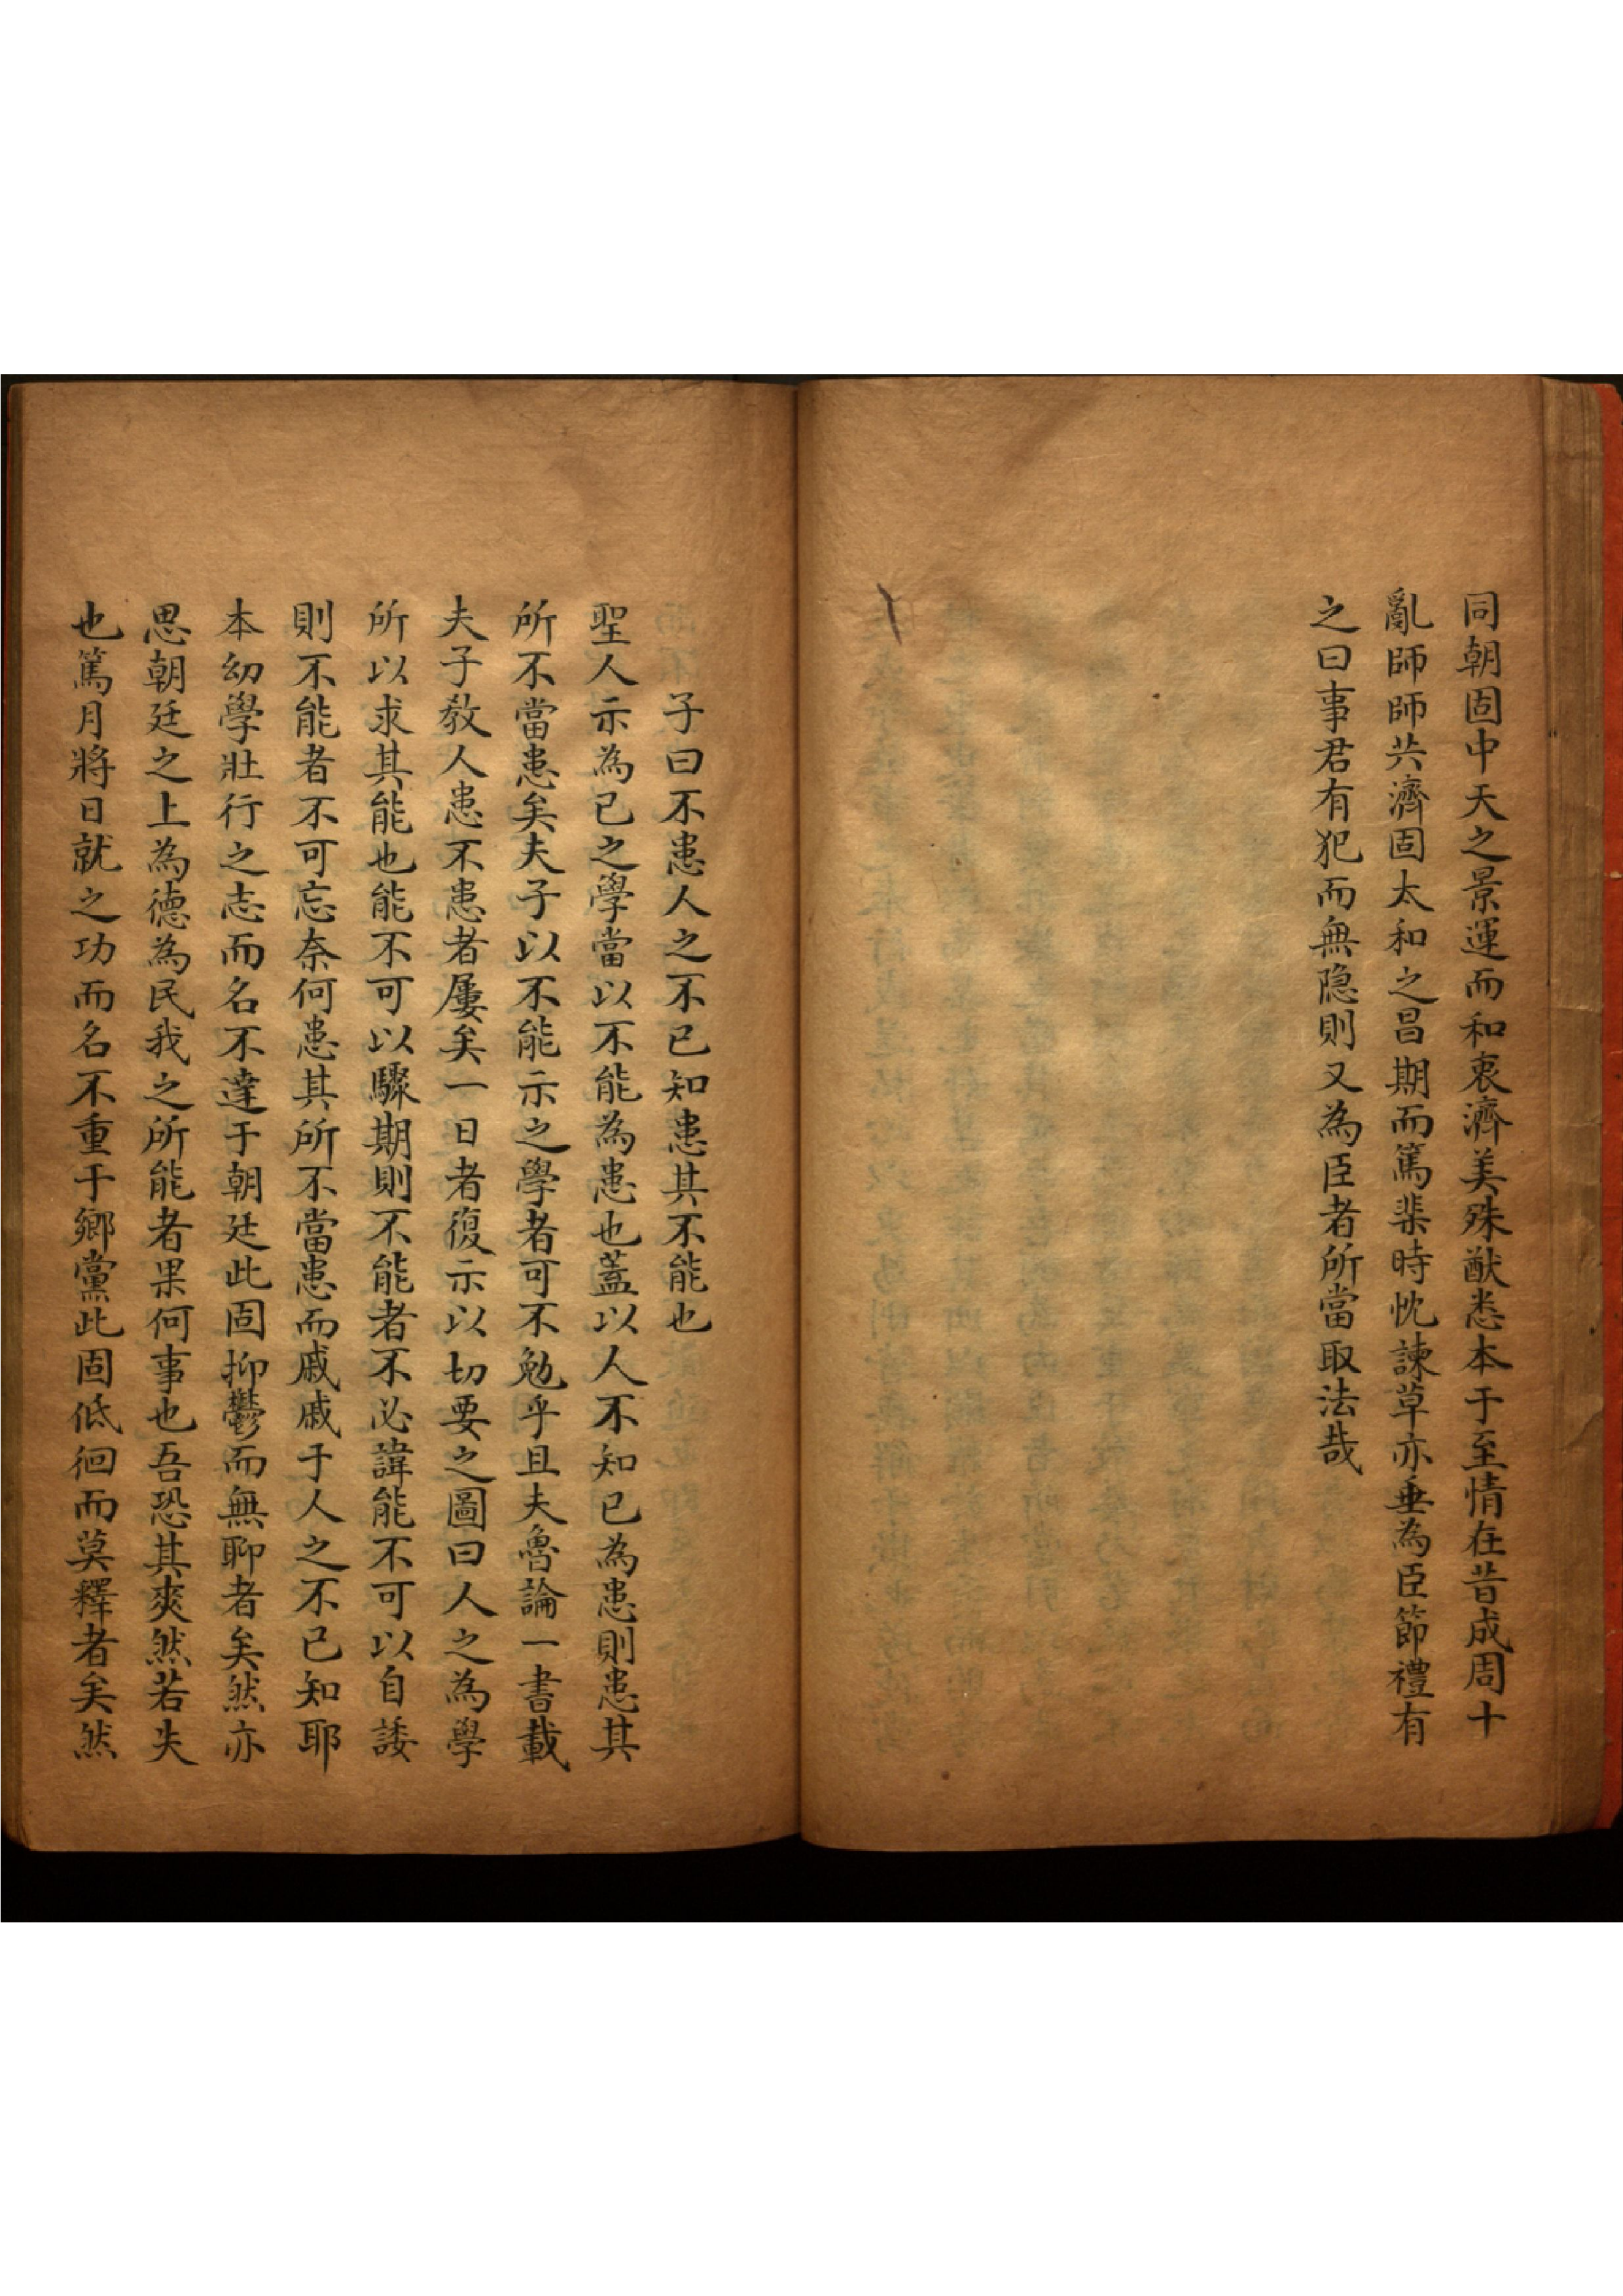 同朝固中天之景運而和衷濟美殊猷悉本于至情在昔成周十
亂師師共濟固太和之昌期而篤棐時忱諫草亦垂為臣節禮有
之曰事君有犯而無隐則又為臣者所當取法哉
子曰不患人之不已知患其不能也
聖人示為已之學當以不能為患也蓋以人不知已為患則患其
所不當患矣夫子以不能示之學者可不勉乎且夫魯論一書載
夫子教人患不患者屢矣一日者復示以切要之圖曰人之為學
所以求其能也能不可以驟期則不能者不必諱能不可以自諉
則不能者不可忘奈何患其所不當患而戚戚于人之不已知耶
本幼學壯行之志而名不達于朝廷此固抑鬱而無聊者矣然亦
思朝廷之上為德為民我之所能者果何事也吾恐其爽然若失
也篤月將日就之功而名不重于鄉黨此固低徊而莫釋者矣然